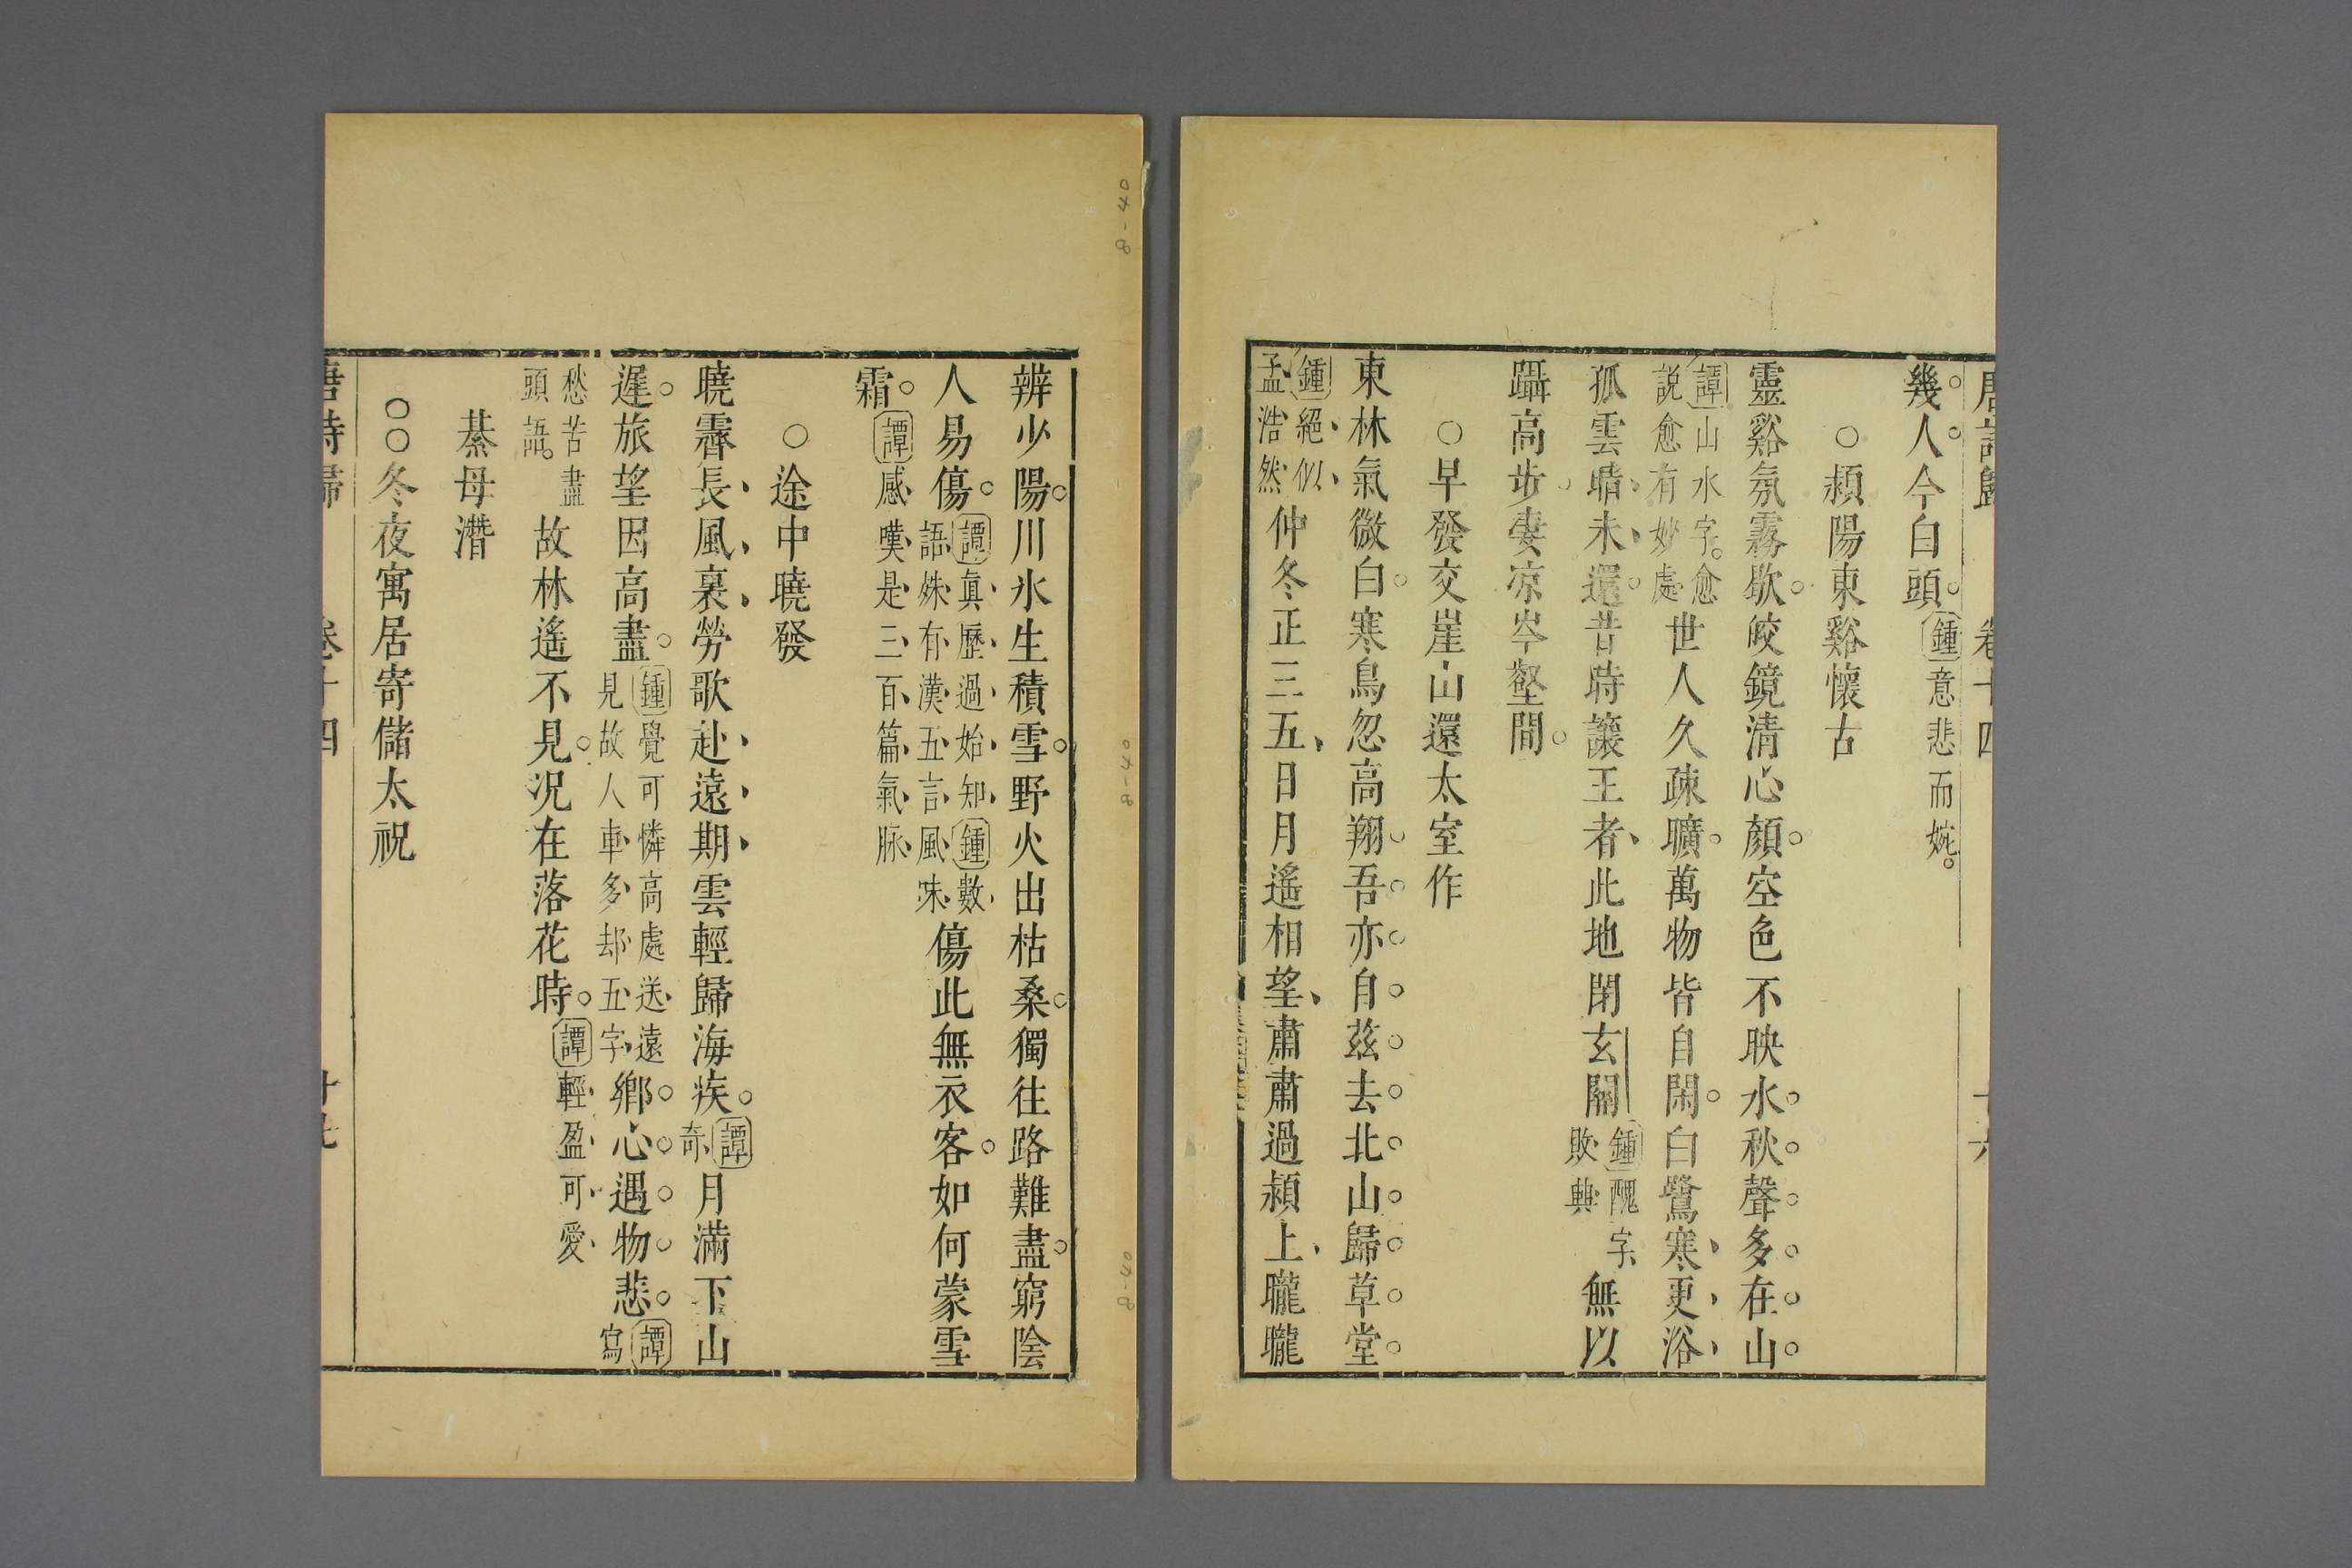 唐詩歸　卷十四
幾人今白頭鍾意悲而婉
○潁陽東谿懷古
靈谿氛霧歇皎鏡清心顏空色不映水秋聲多在山
譚山水字愈說愈有妙處世人久疎曠萬物皆自閑白鷺寒更浴
孤雲晴未還昔時讓王者此地閉玄關鍾醜字敗典無以
躡高步淒凉岑壑間
○早發交崖山還太室作
東林氣微白寒鳥忽高翔吾亦自茲去北山歸草堂
鍾絕似孟浩然仲冬正三五日月遙相望肅肅過潁上曨曨
辨少陽川氷生積雪野火出枯桑獨往路難盡窮陰
人易傷譚真歷過始知鍾數語姝有漢五言風味傷此無衣客如何蒙雪
霜譚感嘆是三百篇氣脉
○途中曉發
曉霽長風裏勞歌赴遠期雲輕歸海疾譚奇月滿下山
遲旅望因高盡鍾覺可憐高處送遠見故人車多却五字鄉心遇物悲譚寫
愁苦盡頭語故林遙不見況在落花時譚輕盈可愛
綦母潛
○○冬夜寓居寄儲太祝
唐詩歸　卷十四